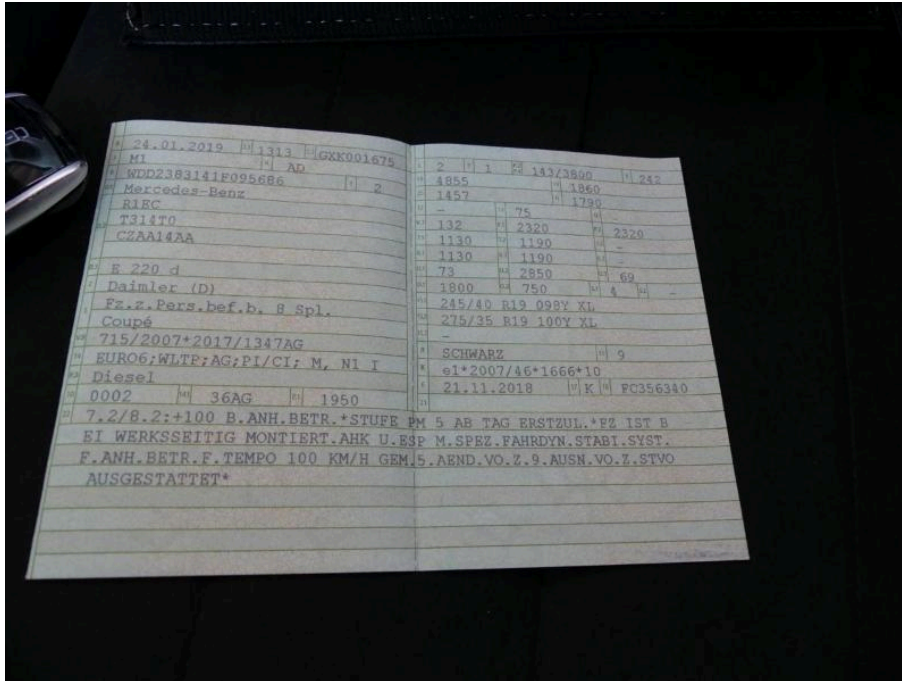 24.01.2019 1313 GXK001675
M1 AD
WDD2383141F095686 2
Mercedes-Benz
R1EC
T314T0
CZAA14AA
E 220 d
Daimler (D)
Fz.z.Pers.bef.b. 8 Spl.
Coupé
715/2007*2017/1347AG
EURO6;WLTP;AG;PI/CI; M, N1 I
Diesel
0002 36AG 1950
2 1 143/3800 242
4855 1860
1457 1790
- 75 -
132 2320 2320
1130 1190 -
1130 1190 -
73 2850 69
1800 750 4 -
245/40 R19 098Y XL
275/35 R19 100Y XL
-
SCHWARZ 9
e1*2007/46*1666*10
21.11.2018 K FC356340
7.2/8.2:+100 B.ANH.BETR.*STUFE PM 5 AB TAG ERSTZUL.*FZ IST B
EI WERKSSEITIG MONTIERT.AHK U.ESP M.SPEZ.FAHRDYN.STABI.SYST.
F.ANH.BETR.F.TEMPO 100 KM/H GEM.5.AEND.VO.Z.9.AUSN.VO.Z.STVO
AUSGESTATTET*